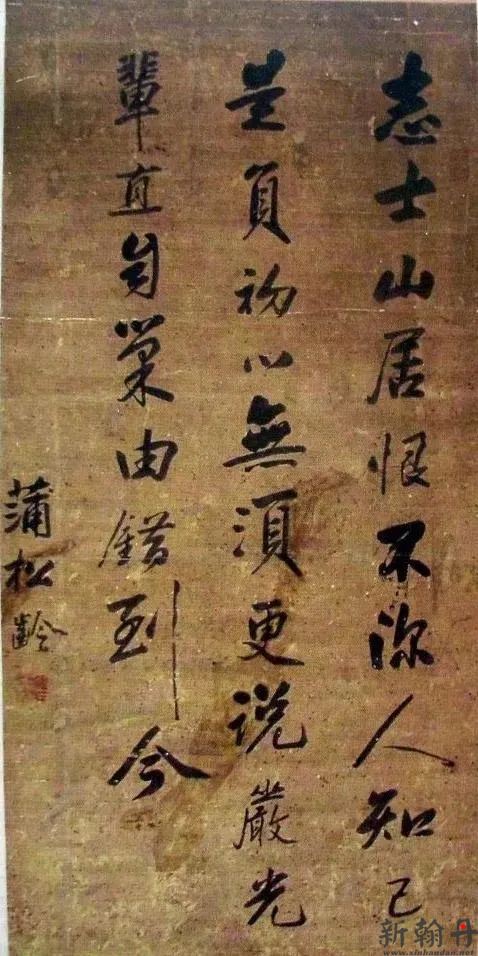 志士山居恨不深人知已
是負初心無須更説嚴光
輩直自巢由錯到今
蒲松齡
新翰丹
www.xinhandan.net